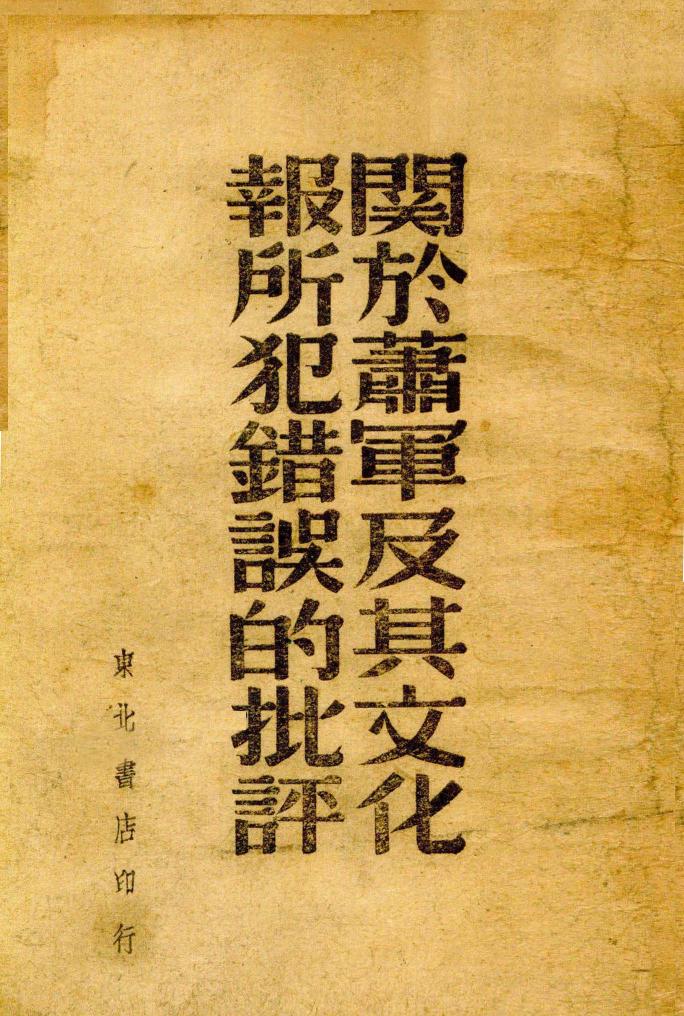 関於蕭軍及其文化
報所犯錯誤的批評
東北書店印行